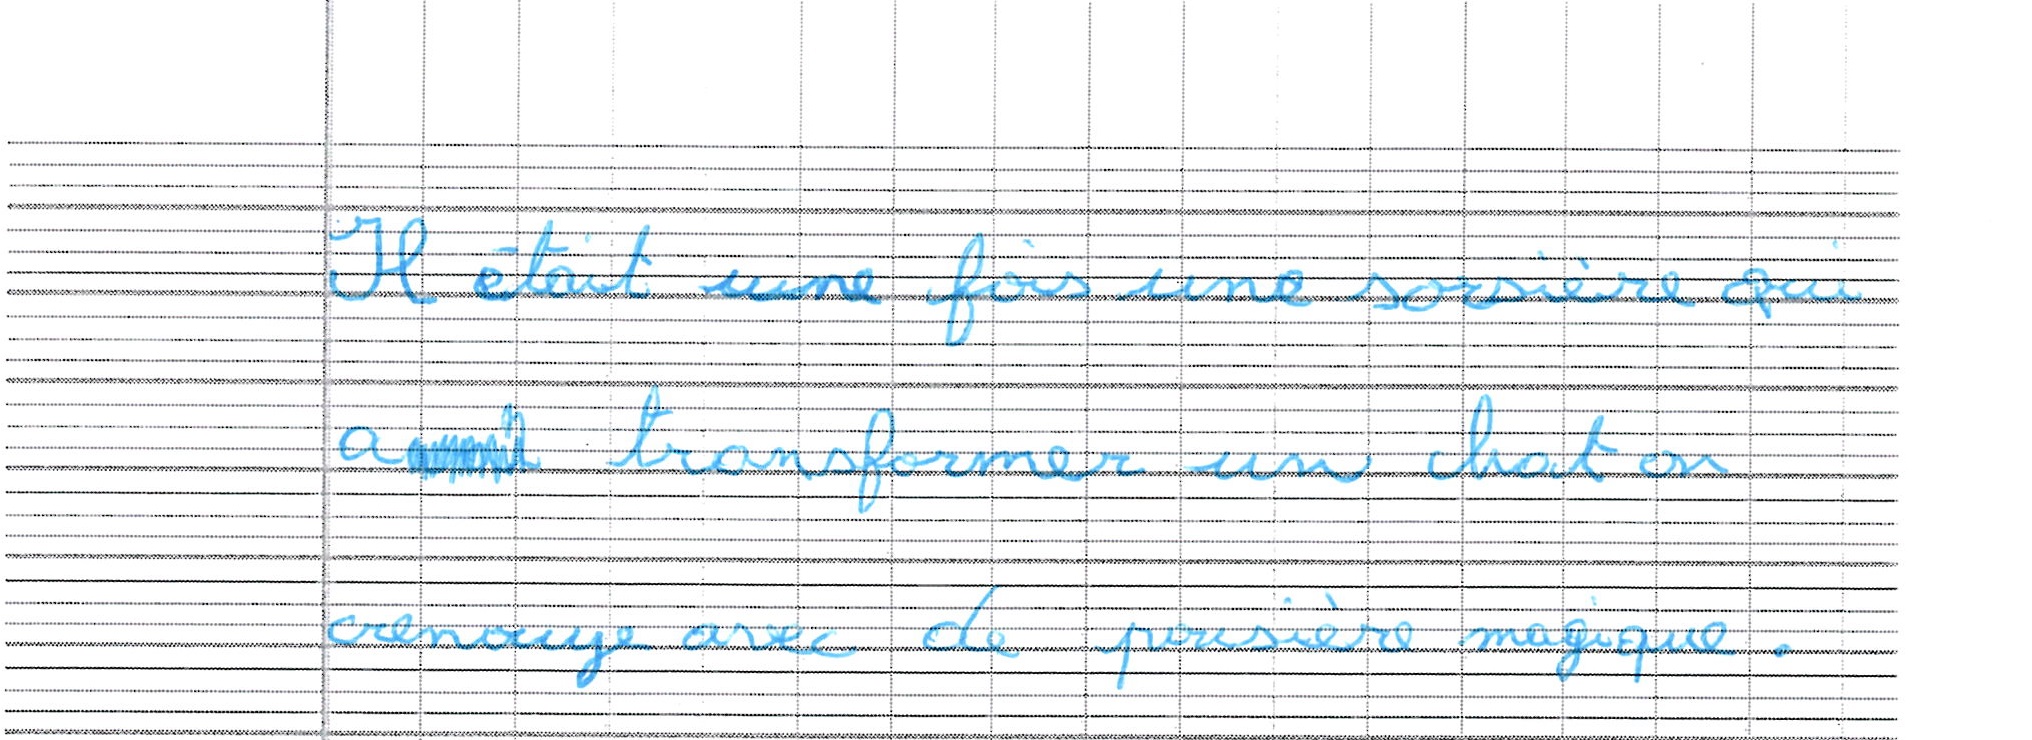 Il était une fois une sorsière qui
a transformer un chat on
crenouye avec de pousière magique.